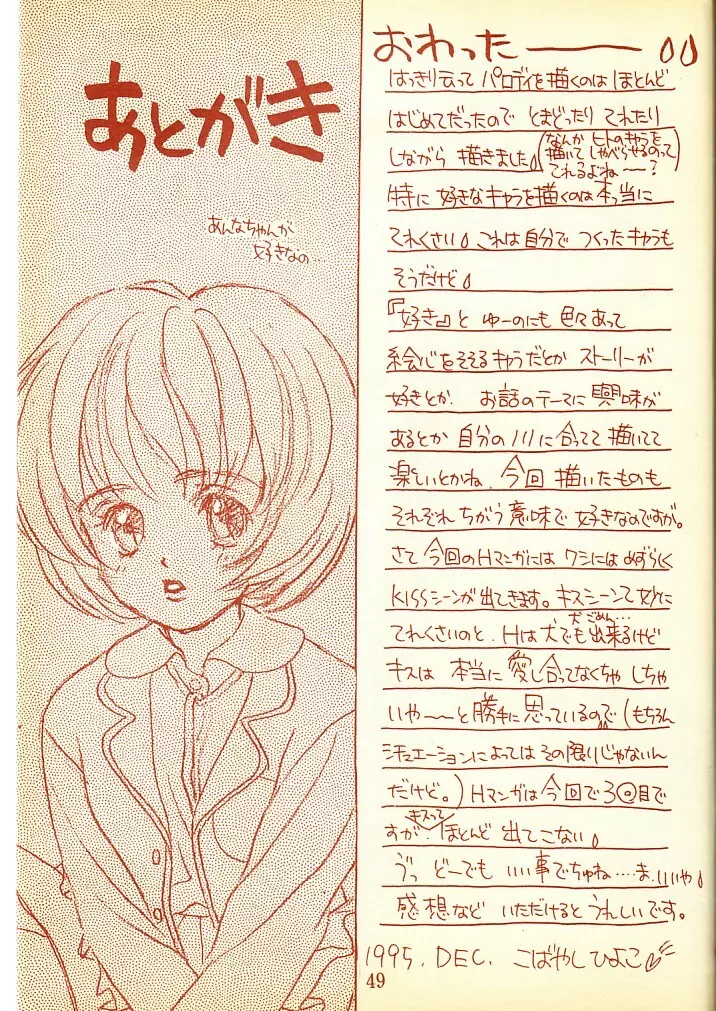 あとがき
あんなちゃんが
好きなの…
おわったー
はっきり云って パロディを描くのは ほとんど
はじめてだったので とまどったり てれたり
しながら 描きました
(なんか ヒトのキャラを
描いて しゃべらせるのって
てれるよねー?)
特に 好きなキャラを描くのは 本っ当に
てれくさい これは自分で つくったキャラも
そうだけど
『好き』と ゆーのにも 色々あって
絵心をそそるキャラだとか ストーリーが
好きとか. お話のテーマに 興味が
あるとか 自分のノリに合ってて 描いてて
楽しいとかね. 今回 描いたものも
それぞれ ちがう意味で 好きなのですが。
さて 今回のHマンガには ワシには めずらしく
KISSシーンが出てきます。キスシーンて妙に
犬ごめん…
てれくさいのと. Hは犬でも出来るけど
キスは 本当に 愛し合ってなくちゃ しちゃ
いや〜〜と勝手に思っているので (もちろん
シチュエーションによっては その限りじゃないん
だけど。) Hマンガは今回で3回目で
キスって
すが. ほとんど 出てこない
うっ どーでも いい事でちゅね…‥ま.いいや
感想など いただけると うれしいです。
1995. DEC. こばやしひよこ
49